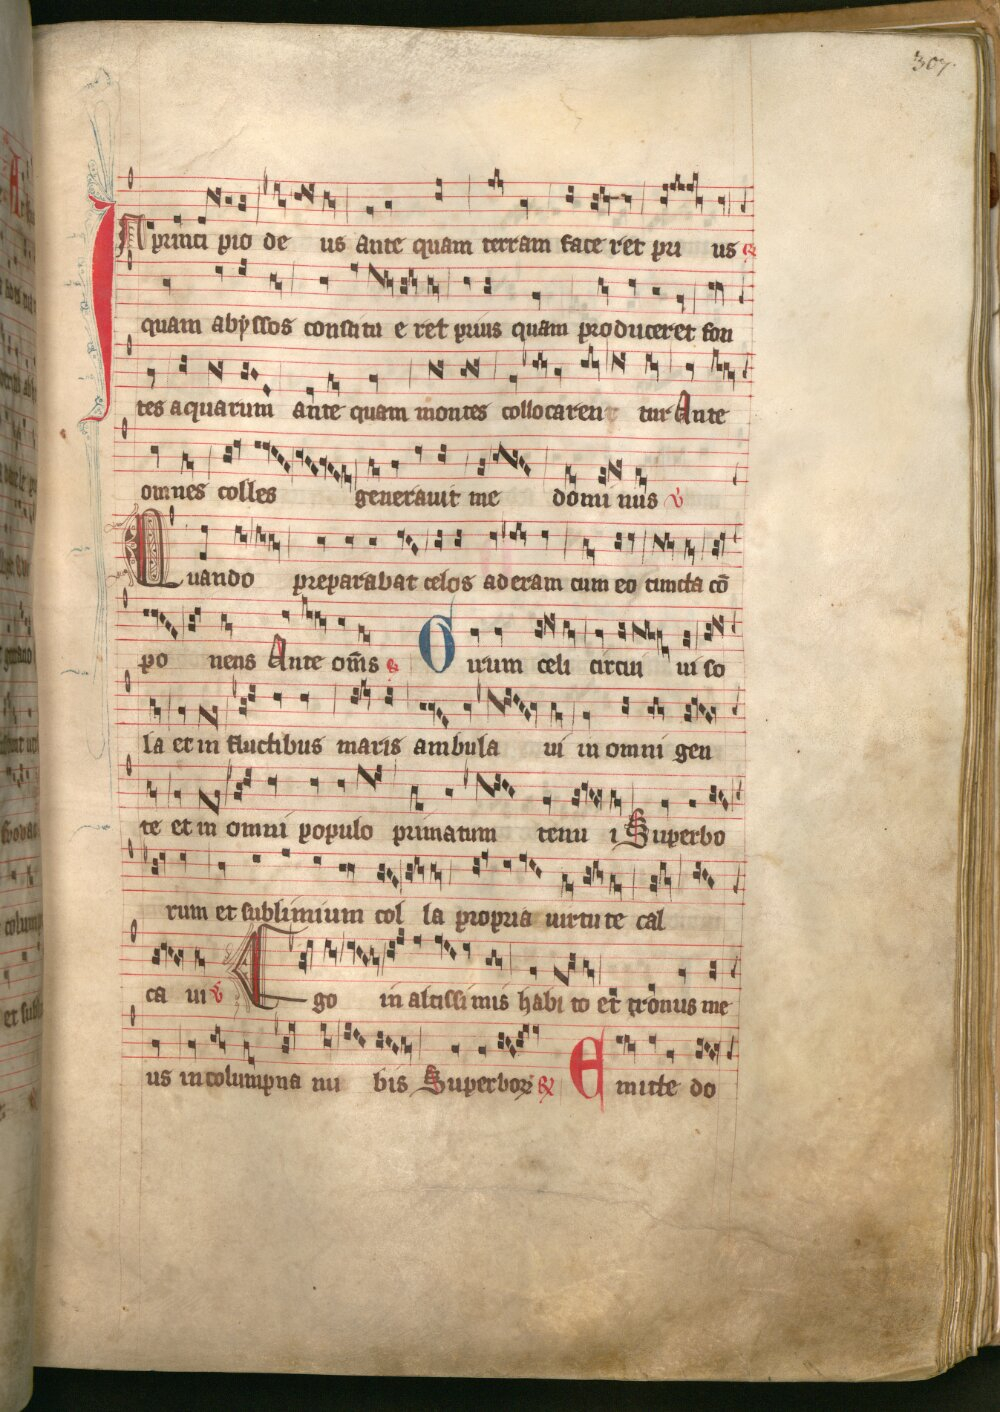 307
In princi pio de us ante quam terram face ret pri us &
quam abyssos constitu e ret prius quam produceret fon
tes aquarum ante quam montes collocaren tur Ante
omnes colles generauit me domi nus v
Quando preparabat celos aderam cum eo cuncta cō
po nens Ante om̄s & Girum celi circui ui so
la et in fluctibus maris ambula ui in omni gen
te et in omni populo primatum tenu i Superbo
rum et sublimium col la propria uirtu te cal
ca ui v Ego in altissimis habi to et tronus me
us in columpna nu bis Superboꝝ & Emitte do